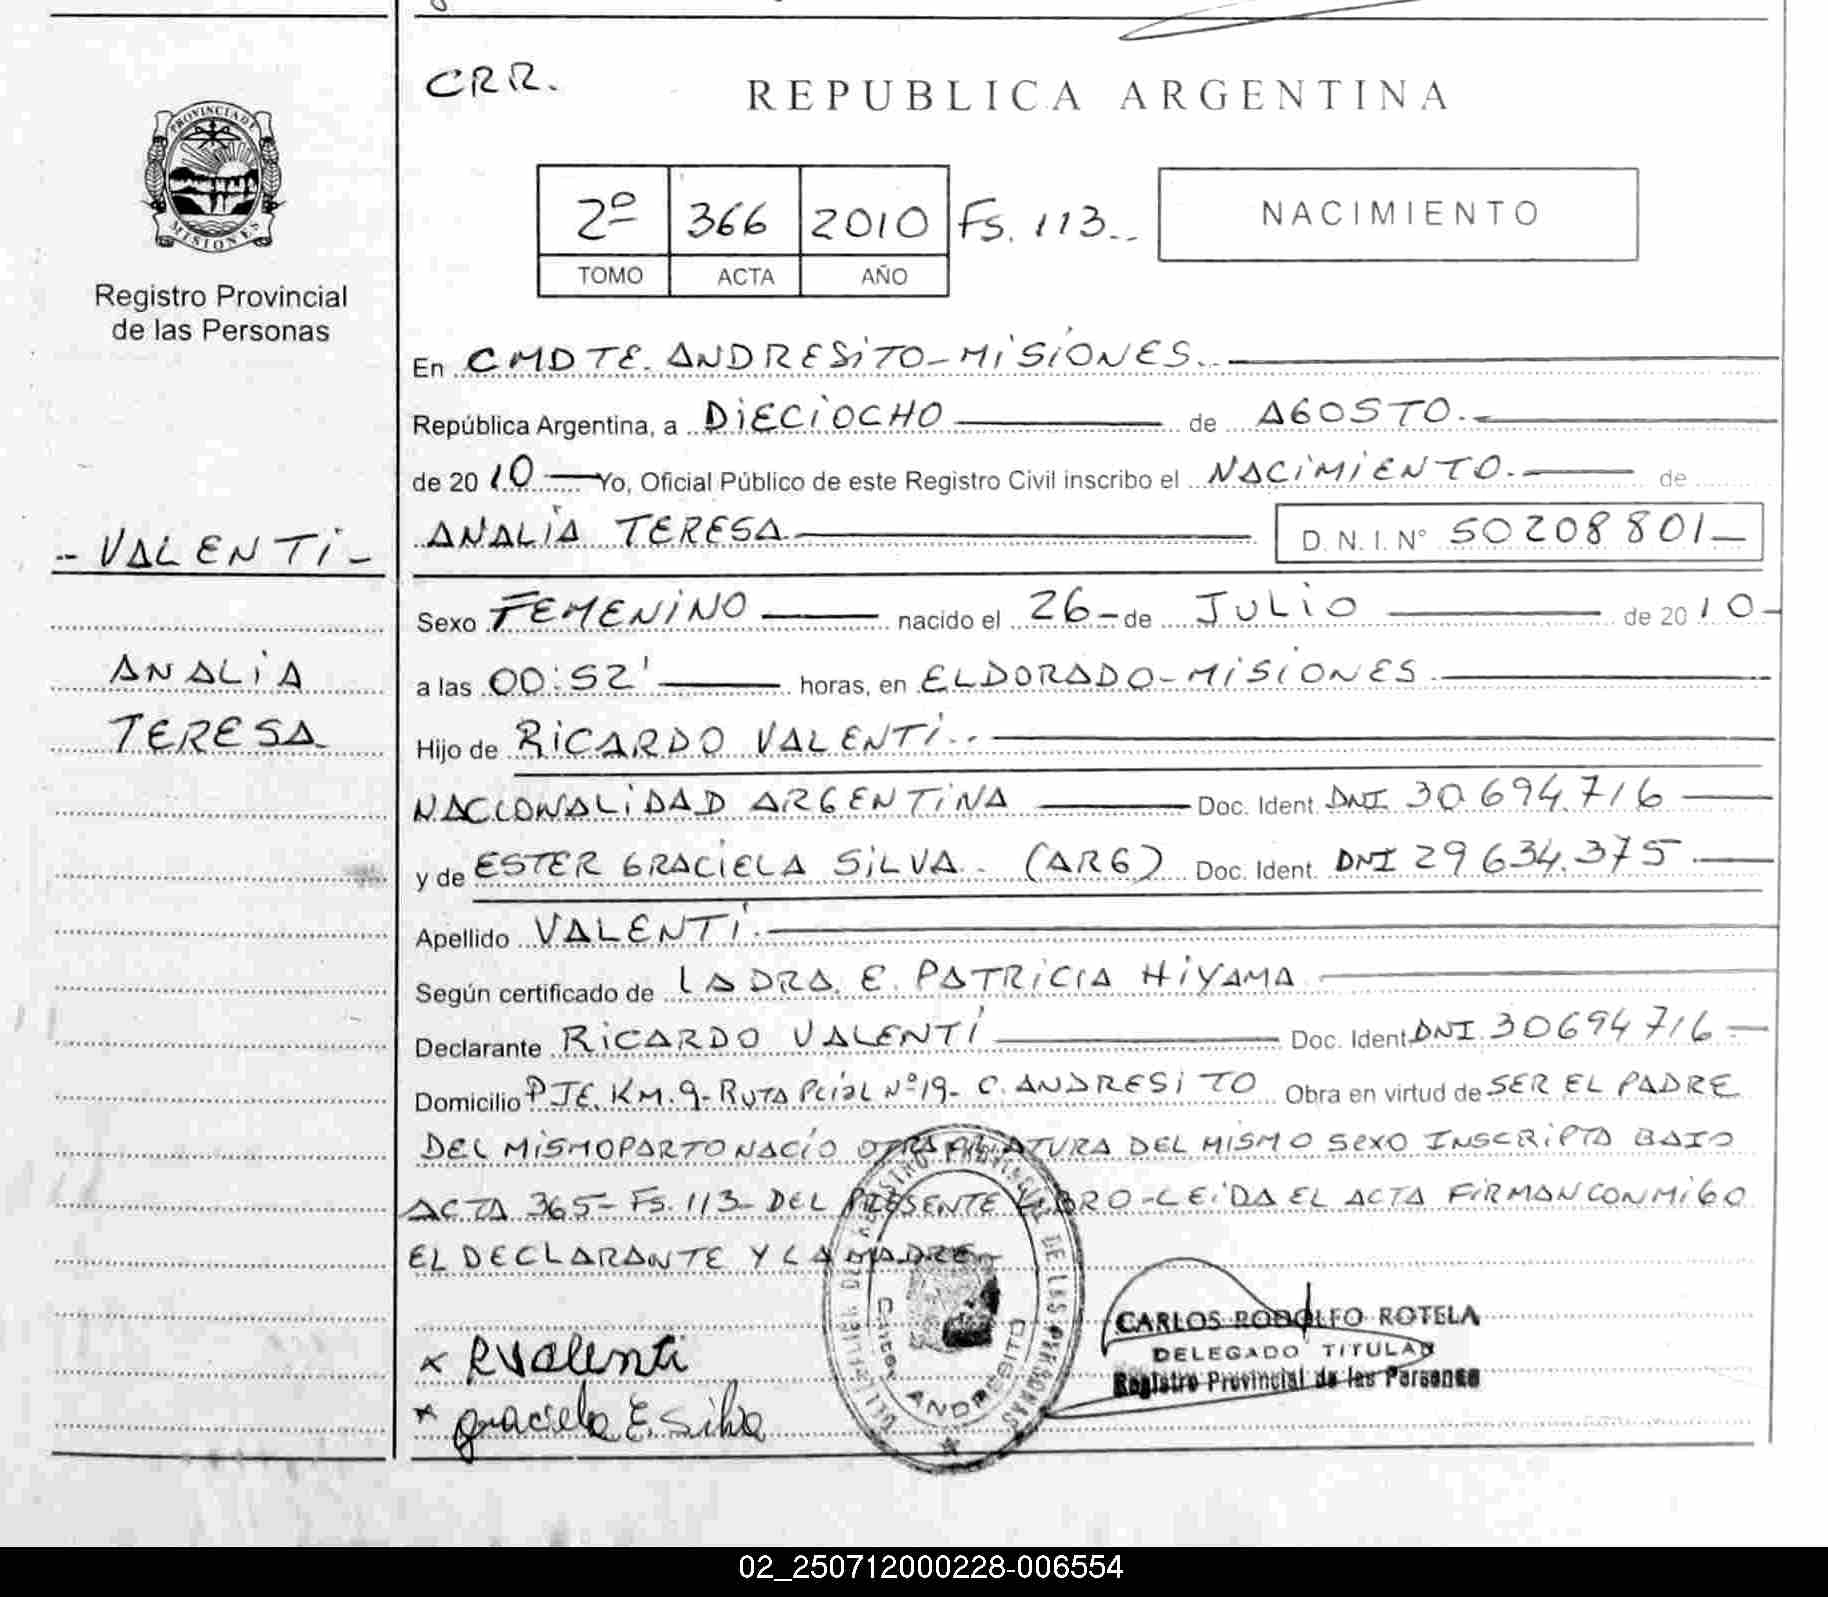 CRR.
REPUBLICA ARGENTINA
PROVINCIA DE
MISIONES
Registro Provincial
de las Personas
2º 366 2010 Fs. 113..
TOMO ACTA AÑO
NACIMIENTO
En CMDTE. ANDRESITO-MISIONES.
República Argentina, a DIECIOCHO de AGOSTO.
de 2010 Yo, Oficial Público de este Registro Civil inscribo el NACIMIENTO. de
- VALENTI -
ANALIA TERESA D. N. I. Nº 50208801
Sexo FEMENINO nacido el 26 de JULIO de 2010
ANALIA
a las 00:52' horas, en ELDORADO-MISIONES
TERESA
Hijo de RICARDO VALENTI..
NACIONALIDAD ARGENTINA Doc. Ident. DNI 30.694.716
y de ESTER GRACIELA SILVA. (ARG) Doc. Ident. DNI 29.634.375
Apellido VALENTI.
Según certificado de LA DRA. E. PATRICIA HIYAMA
Declarante RICARDO VALENTI Doc. Ident DNI. 30694716
Domicilio PJE. KM. 9- RUTA PCIAL Nº19- C. ANDRESITO Obra en virtud de SER EL PADRE
DEL MISMO PARTO NACIO OTRA CRIATURA DEL MISMO SEXO INSCRIPTA BAJO
ACTA 365- Fs. 113- DEL PRESENTE LIBRO-LEIDA EL ACTA FIRMAN CONMIGO
EL DECLARANTE Y LA MADRE
REGISTRO PROVINCIAL DE LAS PERSONAS
ANDRESITO
CARLOS RODOLFO ROTELA
DELEGADO TITULAR
Registro Provincial de las Personas
x RValenti
x Graciela E. Silva
02_250712000228-006554